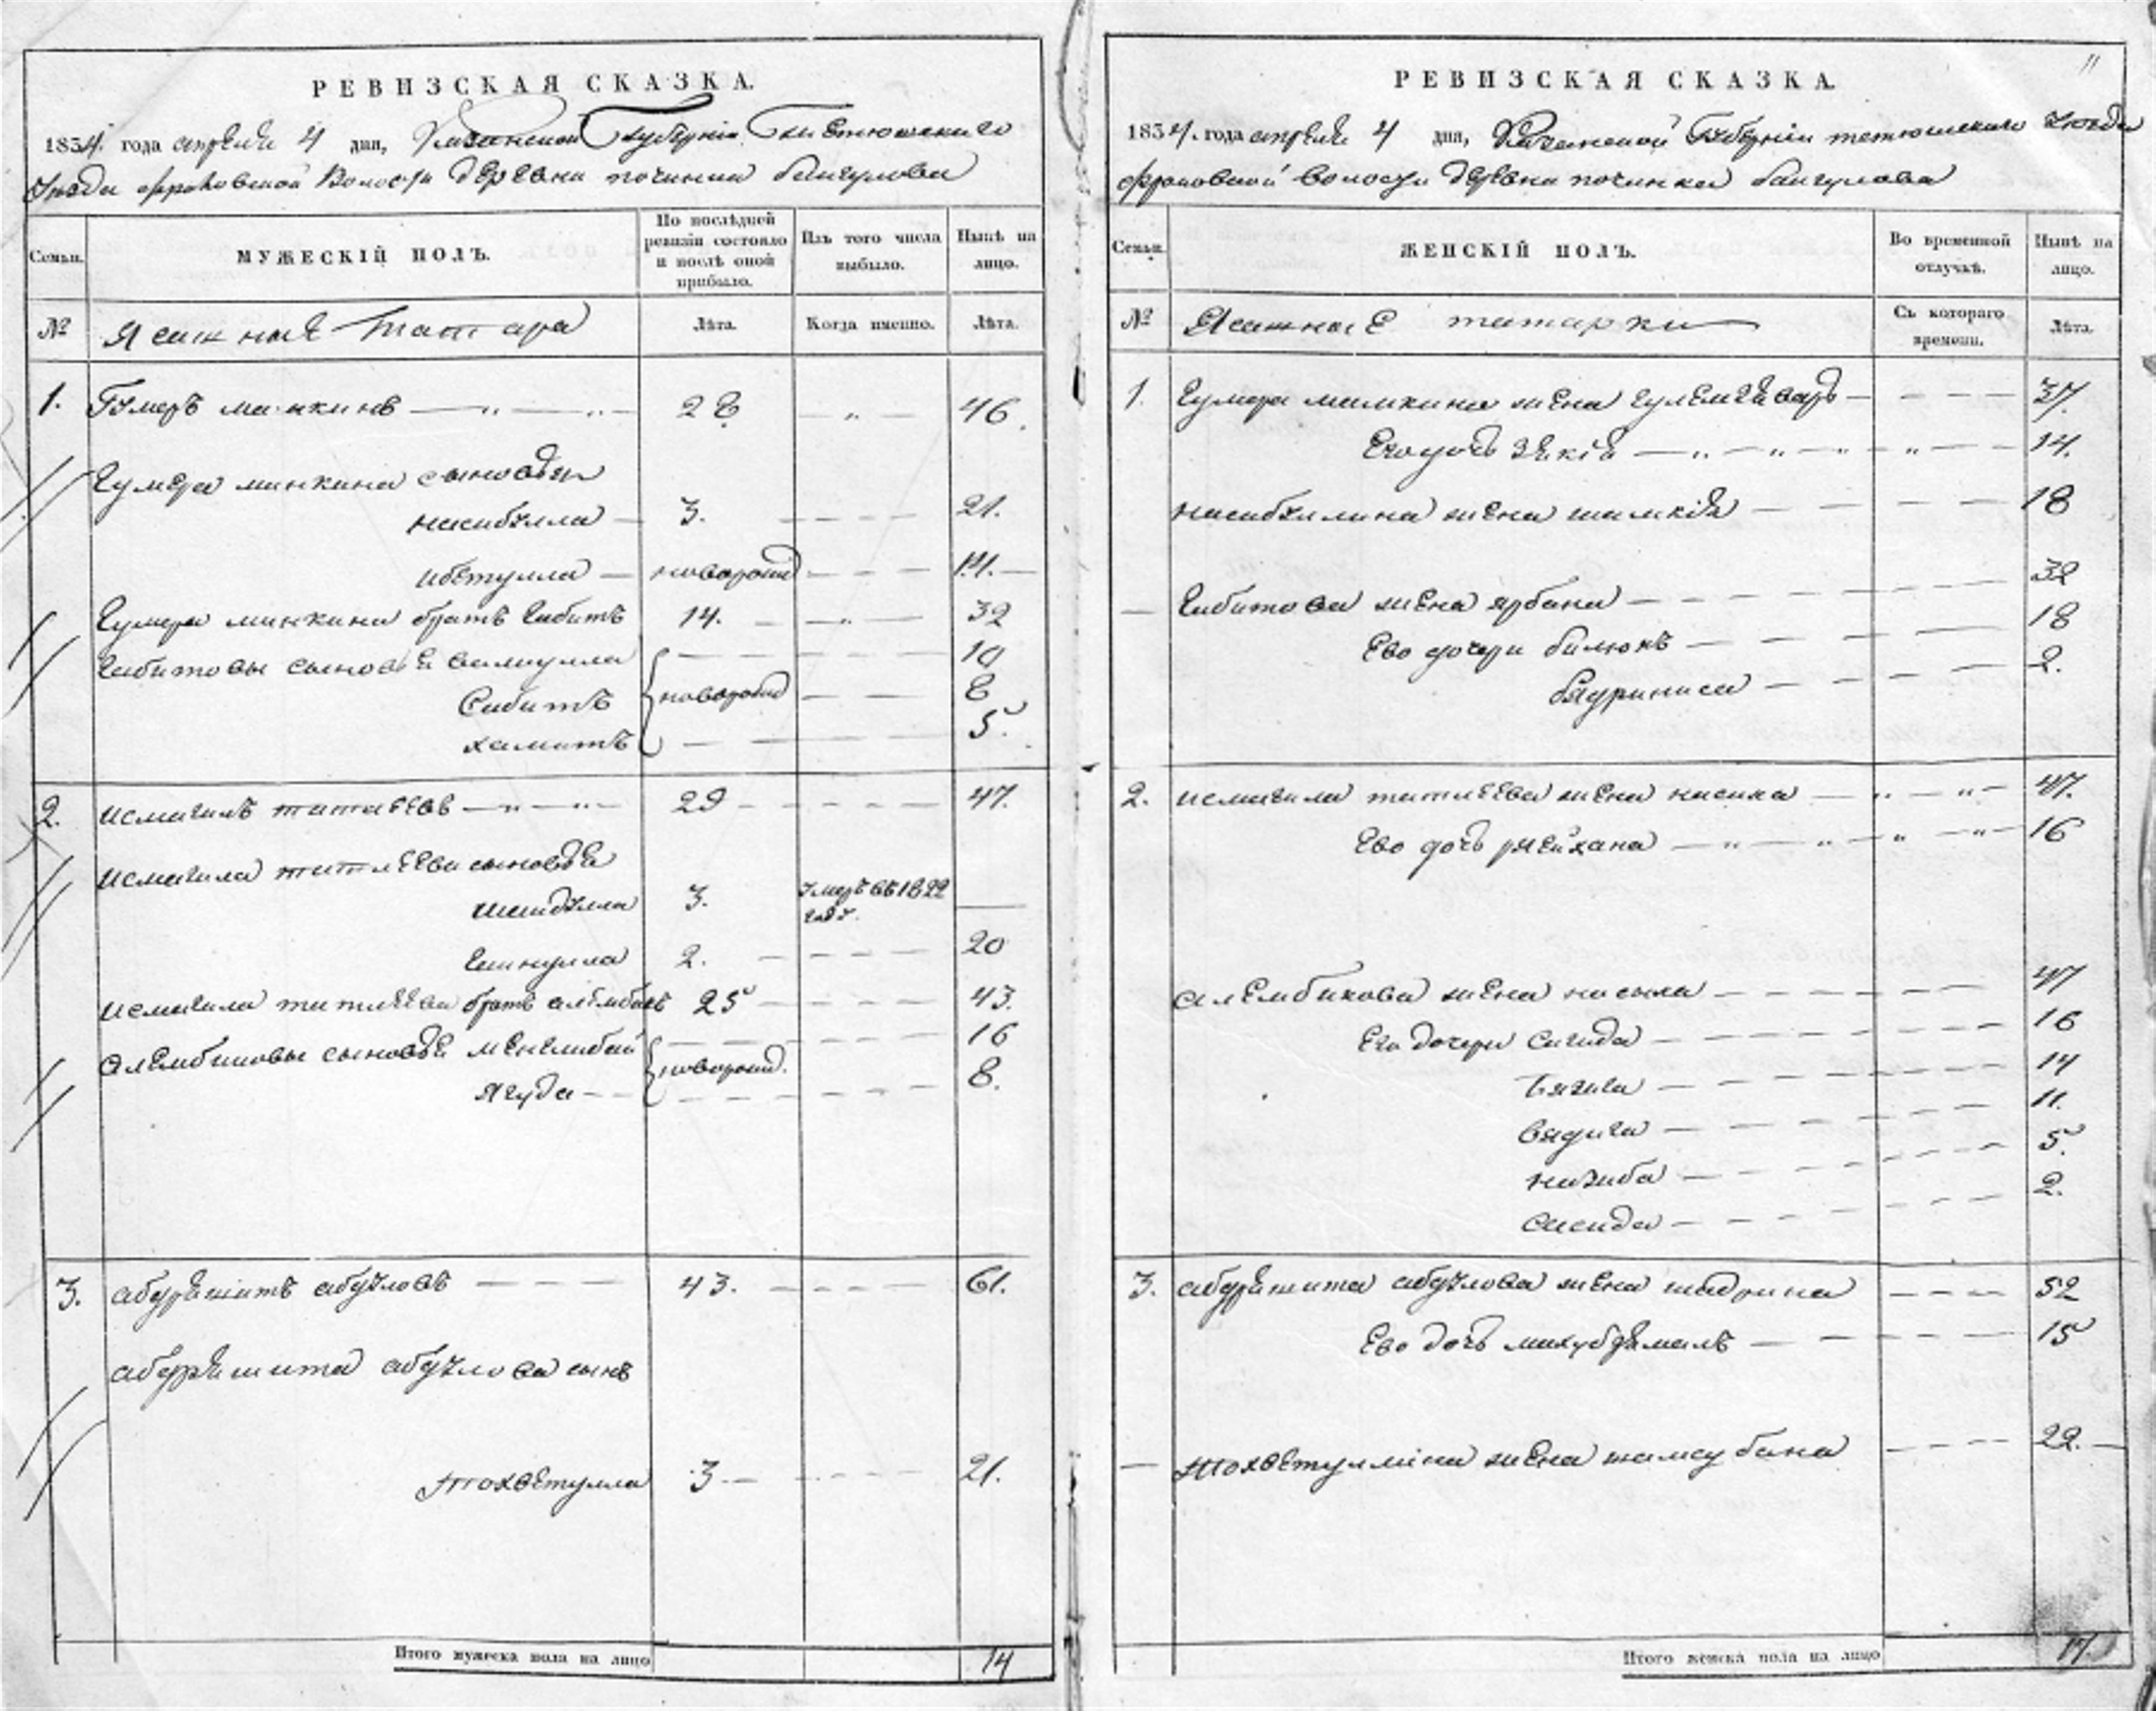 РЕВИЗСКАЯ СКАЗКА.
1834. года апреля 4 дня, Казанской Губерніи Тетюшскаго
Уезда фроловской Волости деревни починка баигулова
Семьи.
МУЖЕСКІЙ ПОЛЪ.
По послѣдней ревизіи состояло и послѣ оной прибыло.
Изъ того числа выбыло.
Нынѣ на лицо.
№
Ясашные Татара
Лѣта.
Когда именно.
Лѣта.
1. Гумеръ манкинъ — „ — „ — 28. „ — 46.
Гумера манкина сыновья
насибулла — 3. 21.
новорожд 14.
Гумера манкина братъ Габитъ 14. — „ — 32
Габитовы сыновьѣ валиулла 10
Сабитъ новорожд 8
хамитъ 5.
2. исмагилъ — „ — „ — 29 47.
исмагила сыновьѣ
шаидулла 3. Умеръ въ 1822 году. —
2. 20
исмагила братъ алембикъ 25 43.
алембиковы сыновьѣ менглибай 16
новорожд.
Ягуда 8.
3. абдряшитъ абдуловъ 43. 61.
абдряшита абдулова сынъ
тохветулла 3 21.
Итого мужеска пола на лицо 14
РЕВИЗСКАЯ СКАЗКА.
11
1834. года апреля 4 дня, Казанской Губерніи тетюшскаго Уезда
фроловской волости деревни починка баигулова
Семьи.
ЖЕНСКІЙ ПОЛЪ.
Во временной отлучкѣ.
Нынѣ на лицо.
№
Ясашные татарки
Съ котораго времени.
Лѣта.
1. Гумера манкина жена 37.
Его дочь — „ — „ — „ „ — 14.
насибуллина жена шамкія 18
— Габитова жена ярбана 32
Ево дочери 18
бядриниса 2.
2. исмагила жена — „ — „ — 47.
Ево дочь ряйхана — „ — „ — „ „ — 16
алембикова жена 47
Его дочери Сагида 16
14
11.
назиба 5.
саеида 2.
3. абдряшита абдулова жена 52
Ево дочь махубдямалъ 15
— тохветуллина жена шамсубана 22.
Итого женска пола на лицо 17.